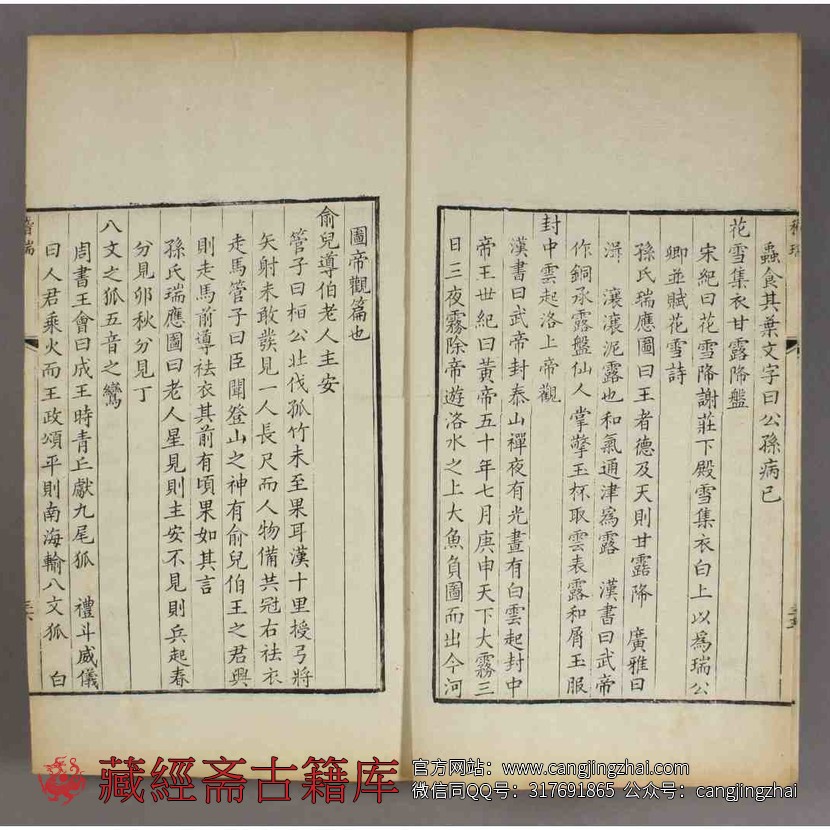 蟲食其葉文字曰公孫病已
花雪集衣甘露降盤
宋紀曰花雪降謝莊下殿雪集衣白上以為瑞公
卿並賦花雪詩
孫氏瑞應圖曰王者德及天則甘露降 廣雅曰
瀼瀼泥露也和氣通津為露 漢書曰武帝
作銅承露盤仙人掌擎玉杯取雲表露和屑玉服
封中雲起洛上帝觀
漢書曰武帝封泰山禪夜有光晝有白雲起封中
帝王世紀曰黃帝五十年七月庚申天下大霧三
日三夜霧除帝遊洛水之上大魚負圖而出今河
圖帝觀篇也
俞兒導伯老人主安
管子曰桓公北伐孤竹未至果耳漢十里授弓將
矢射未敢發見一人長尺而人物備共冠右袪衣
走馬管子曰臣聞登山之神有俞兒伯王之君興
則走馬前導袪衣其前有頃果如其言
孫氏瑞應圖曰老人星見則主安不見則兵起春
分見卯秋分見丁
八文之狐五音之鸞
周書王會曰成王時青丘獻九尾狐 禮斗威儀
曰人君乘火而王政頌平則南海輸八文狐 白
藏經斋古籍库
官方网站：www.cangjingzhai.com
微信同QQ号：317691865 公众号：cangjingzhai